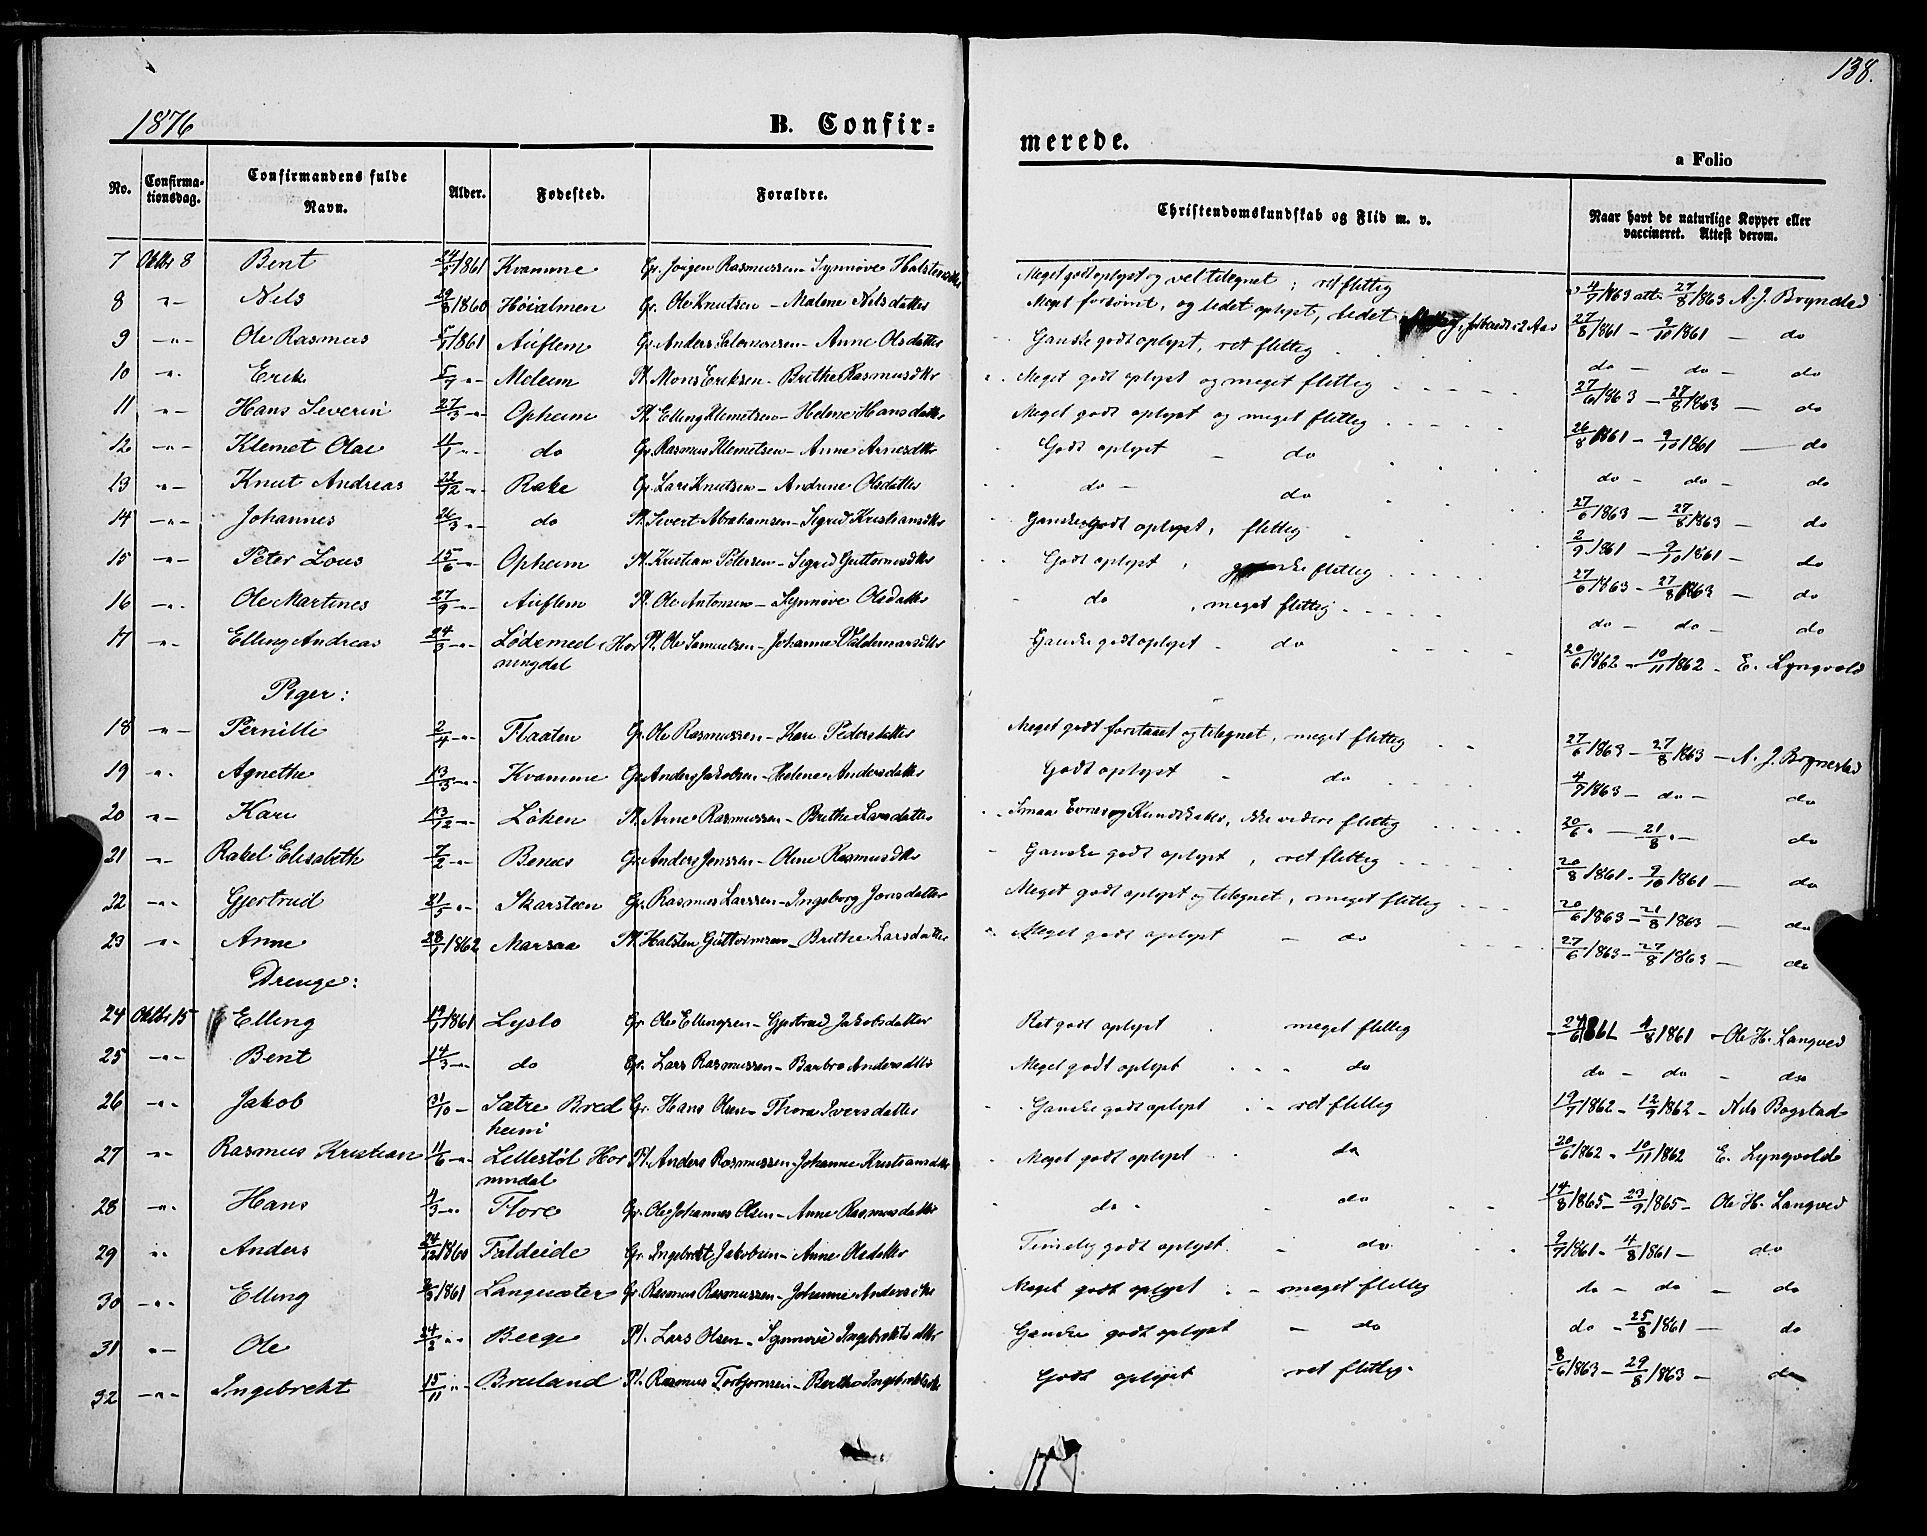 138.
1876
B. Confir-
merede.
a Folio
No.
Confirma-
tionsdag.
Confirmandens fulde
Navn.
Alder.
Fødested.
Forældre.
Christendomskundskab og Flid m. v.
Naar havt de naturlige Kopper eller
vaccineret. Attest derom.
7 Oktbr 8 Bent /1861 Kvamme Gr. Jørgen Rasmussen - Synnøve Meget godt oplyst og vel tilegnet; ret flittig 4/7 1863 att. 27/8 1863 A. J. Brynestad
8 -"- Nils 29/8 1860 Høialmen Gr. Ole Knutsen - Malene Nilsdatter Meget forsømt, og lidet oplyst, lidet 27/8 1861 - 9/10 1861 - do
9 -"- Ole Rasmus 1861 Auflem Gr. Anders Salomonsen - Anne Olsdatter Ganske godt oplyst, ret flittig do - do - do
10 -"- Erik 5/7 -"- Melum Pl. Mons Eriksen - Brithe Rasmusdtr Meget godt oplyst og meget flittig 27/6 1863 - 27/8 1863 - do
11 -"- Hans Severin 27/3 -"- Opheim Pl. Elling Klemetsen - Helene Hansdatter Meget godt oplyst og meget flittig 26/8 1861 - 9/10 1861 - do
12 -"- Klemet Olai -"- do Gr. Rasmus Klemetsen - Anne Arnesdtr Godt oplyst - do do - do - do
13 -"- Knut Andreas 22/12 -"- Rake Gr. Lars Knutsen - Andrine Olsdatter do - do 27/6 1863 - 27/8 1863 - do
14 -"- Johannes 26/3 -"- do Pl. Sivert Abrahamsen - Sigrid Kristiansdtr Ganske godt oplyst, flittig 2/9 1861 - 9/10 1861 - do
15 -"- Peter Lous 15/6 -"- Opheim Pl. Kristian Petersen - Sigrid Guttormsdtr Godt oplyst, ganske flittig 27/6 1863 - 27/8 1863 - do
16 -"- Ole Martines 27/9 -"- Auflem Pl. Ole Antonsen - Synnøve Olsdatter do, meget flittig do - do - do
17 -"- Elling Andreas 24/3 -"- Lødemed i Hor Pl. Ole Samuelsen - Johanne Valdemarsdtr Ganske godt oplyst - do 20/6 1862 - 10/11 1862 - E. Lyngvold
ningdal
Piger:
18 -"- Pernille 2/4 -"- Flaaten Gr. Ole Rasmussen - Kari Pedersdatter Meget godt forstaaet og tilegnet, meget flittig 27/6 1863 - 27/8 1863 - A. J. Brynestad
19 -"- Agnethe 13/3 -"- Kvamme Gr. Anders Jakobsen - Helene Andersdatter Godt oplyst - do 4/7 1863 - do - do
20 -"- Kari 13/12 -"- Løken Pl. Arne Rasmussen - Brithe Larsdatter Smaa Evner og Kundskaber, ikke videre flittig 20/6 " - 21/8 " - do
21 -"- Rakel Elisabeth 7/2 -"- Benæs Gr. Anders Jonssen - Oline Rasmusdtr Ganske godt oplyst, ret flittig 20/8 1861 - 9/10 1861 - do
22 -"- Gjertrud 21/5 -"- Skarsteen Gr. Rasmus Larssen - Ingeborg Jonsdatter Meget godt oplyst og tilegnet, meget flittig 20/6 1863 - 21/8 1863 - do
23 -"- Anne 28/7 1862 Marsaa Pl. Halsten Guttormsen - Brithe Larsdatter Meget godt oplyst - do 27/6 1863 - 27/8 1863 - do
Drenge:
24 Oktbr 15 Elling 19/7 1861 Lyslo Gr. Ole Ellingsen - Gjertrud Jakobsdatter Ret godt oplyst meget flittig 24/6 1861 4/8 1861 - Ole H. Langved
25 -"- Bent 14/3 -"- do Gr. Lars Rasmussen - Barbro Andersdtr Meget godt oplyst do do - do - do
26 -"- Jakob 31/10 - Sætre Bred Gr. Hans Olsen - Thora Iversdatter Ganske godt oplyst - ret flittig 19/7 1862 - 12/9 1862 - Nils Bogstad
heim
27 -"- Rasmus Kristian 11/6 -"- Lillestøl Hor Pl. Anders Rasmussen - Johanne Kristiansdtr Meget godt oplyst do 20/6 1862 - 10/11 1862 E. Lyngvold
nindal
28 -"- Hans 4/3 -"- Flore Gr. Ole Johannes Olsen - Anne Rasmusdatter do - do 14/8 1865 - 23/9 1865 - Ole H. Langved
29 " Anders 24/12 1860 Faldeide Gr. Ingebrikt Jakobsen - Anne Olsdatter Timelig godt oplyst - do 9/7 1861 - 4/8 1861 - do
30 -"- Elling 1861 Langesæter Gr. Rasmus Rasmussen - Johanne Andersdtr Meget godt oplyst - meget flittig do - do - do
31 -"- Ole 24/2 " Berge Pl. Lars Olsen - Synnøve Ingebriktsdtr Ganske godt oplyst - do do - 25/8 1861 - do
32 -"- Ingebrekt 15/11 " Breland Pl. Rasmus Torbjørnsen - Berthe Godt oplyst ret flittig 8/6 1863 - 29/8 1863 - do